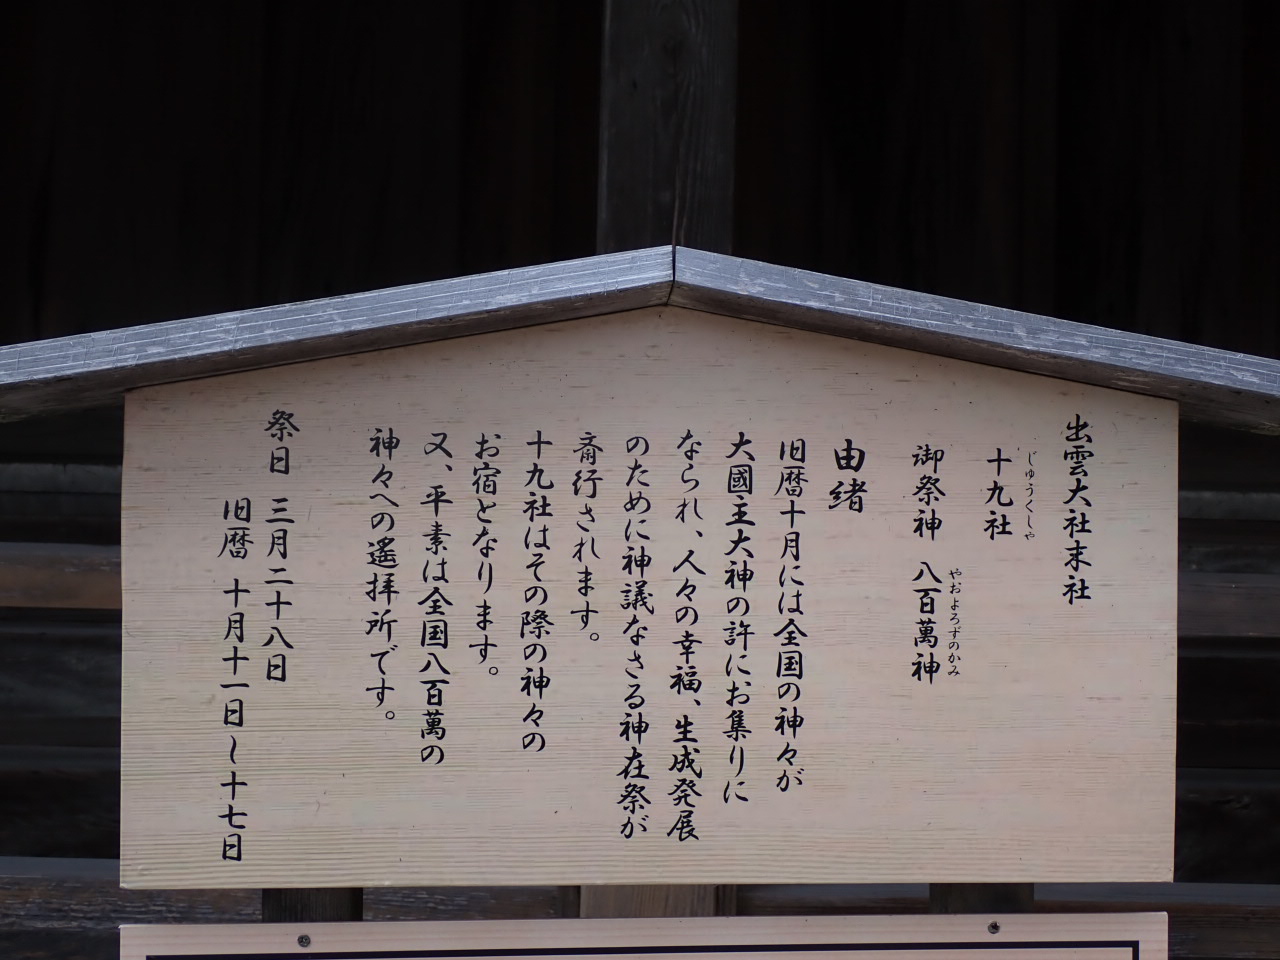 出雲大社末社
じゅうくしゃ
十九社
やおよろずのかみ
御祭神 八百萬神
由緒
旧暦十月には全国の神々が
大國主大神の許にお集りに
なられ、人々の幸福、生成発展
のために神議なさる神在祭が
斎行されます。
十九社はその際の神々の
お宿となります。
又、平素は全国八百萬の
神々への遙拝所です。
祭日 三月二十八日
旧暦 十月十一日〜十七日